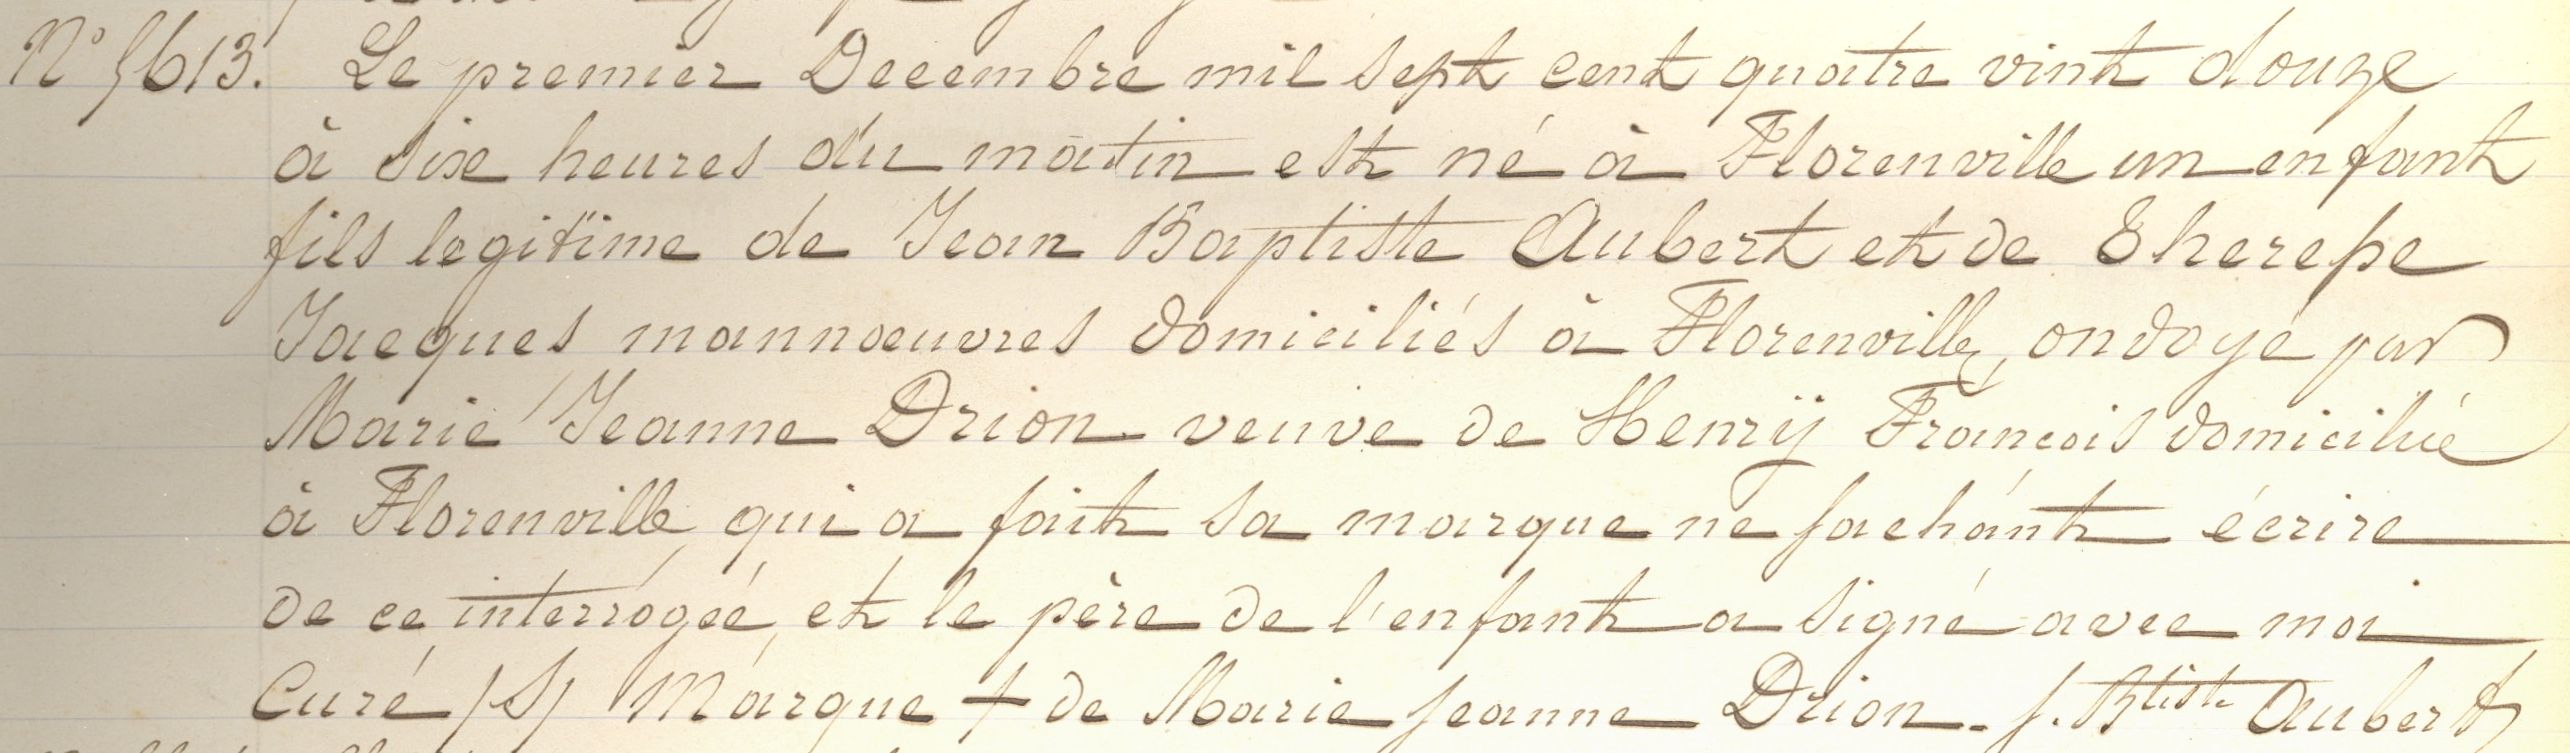 N° 5613. Le premier Decembre mil sept cent quatre vint douze
à six heures du matin est né à Florenville un enfant
fils legitime de Jean Baptiste Aubert et de Therese
Jacques mannoeuvres domiciliés à Florenville, ondoyé par
Marie Jeanne Drion veuve de Henrÿ François domiciliée
à Florenville, qui a fait sa marque ne sachant écrire
de ce interrogée, et le père de l'enfant a signé avec moi
Curé /S/ Marque + de Marie Jeanne Drion - J. Btiste Aubert